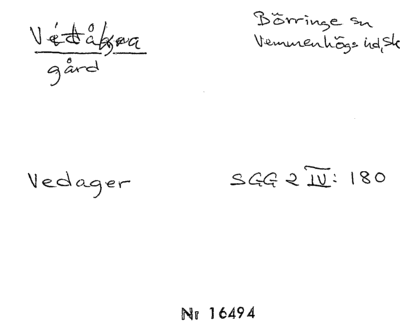 Vedåkra
gård
Börringe sn
Vemmenhögs hd, Sk
Vedager
SGG 2 IV: 180
Nr 16494